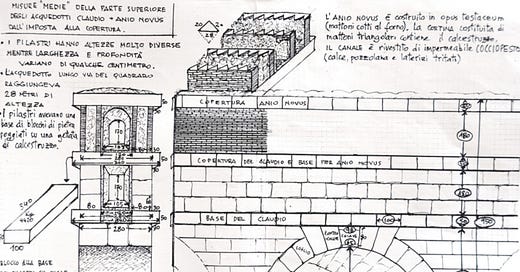 MISURE "MEDIE" DELLA PARTE SUPERIORE
DEGLI ACQUEDOTTI CLAUDIO + ANIO NOVUS
DALL'IMPOSTA ALLA COPERTURA.
• I PILASTRI HANNO ALTEZZE MOLTO DIVERSE
MENTRE LARGHEZZA E PROFONDITÀ
VARIANO DI QUALCHE CENTIMETRO.
• L'ACQUEDOTTO LUNGO VIA DEL QUADRARO
RAGGIUNGEVA
28 METRI DI
ALTEZZA
• I pilastri avevano una
base di blocchi di pietra
poggiati su una gettata
di calcestruzzo.
L'ANIO NOVUS È COSTRUITO IN OPUS TESTACEUM
(MATTONI COTTI AL FORNO). LA CORTINA COSTITUITA DI
MATTONI TRIANGOLARI CONTIENE IL CALCESTRUZZO.
IL CANALE È RIVESTITO DI IMPERMEABILE (COCCIOPESTO)
(calce, pozzolana e laterizi tritati)
20
28
COPERTURA ANIO NOVUS
COPERTURA DEL CLAUDIO E BASE PER ANIO NOVUS
BASE DEL CLAUDIO
120
80
105
80
280
170
100
50
100
BLOCCO ALLA BASE